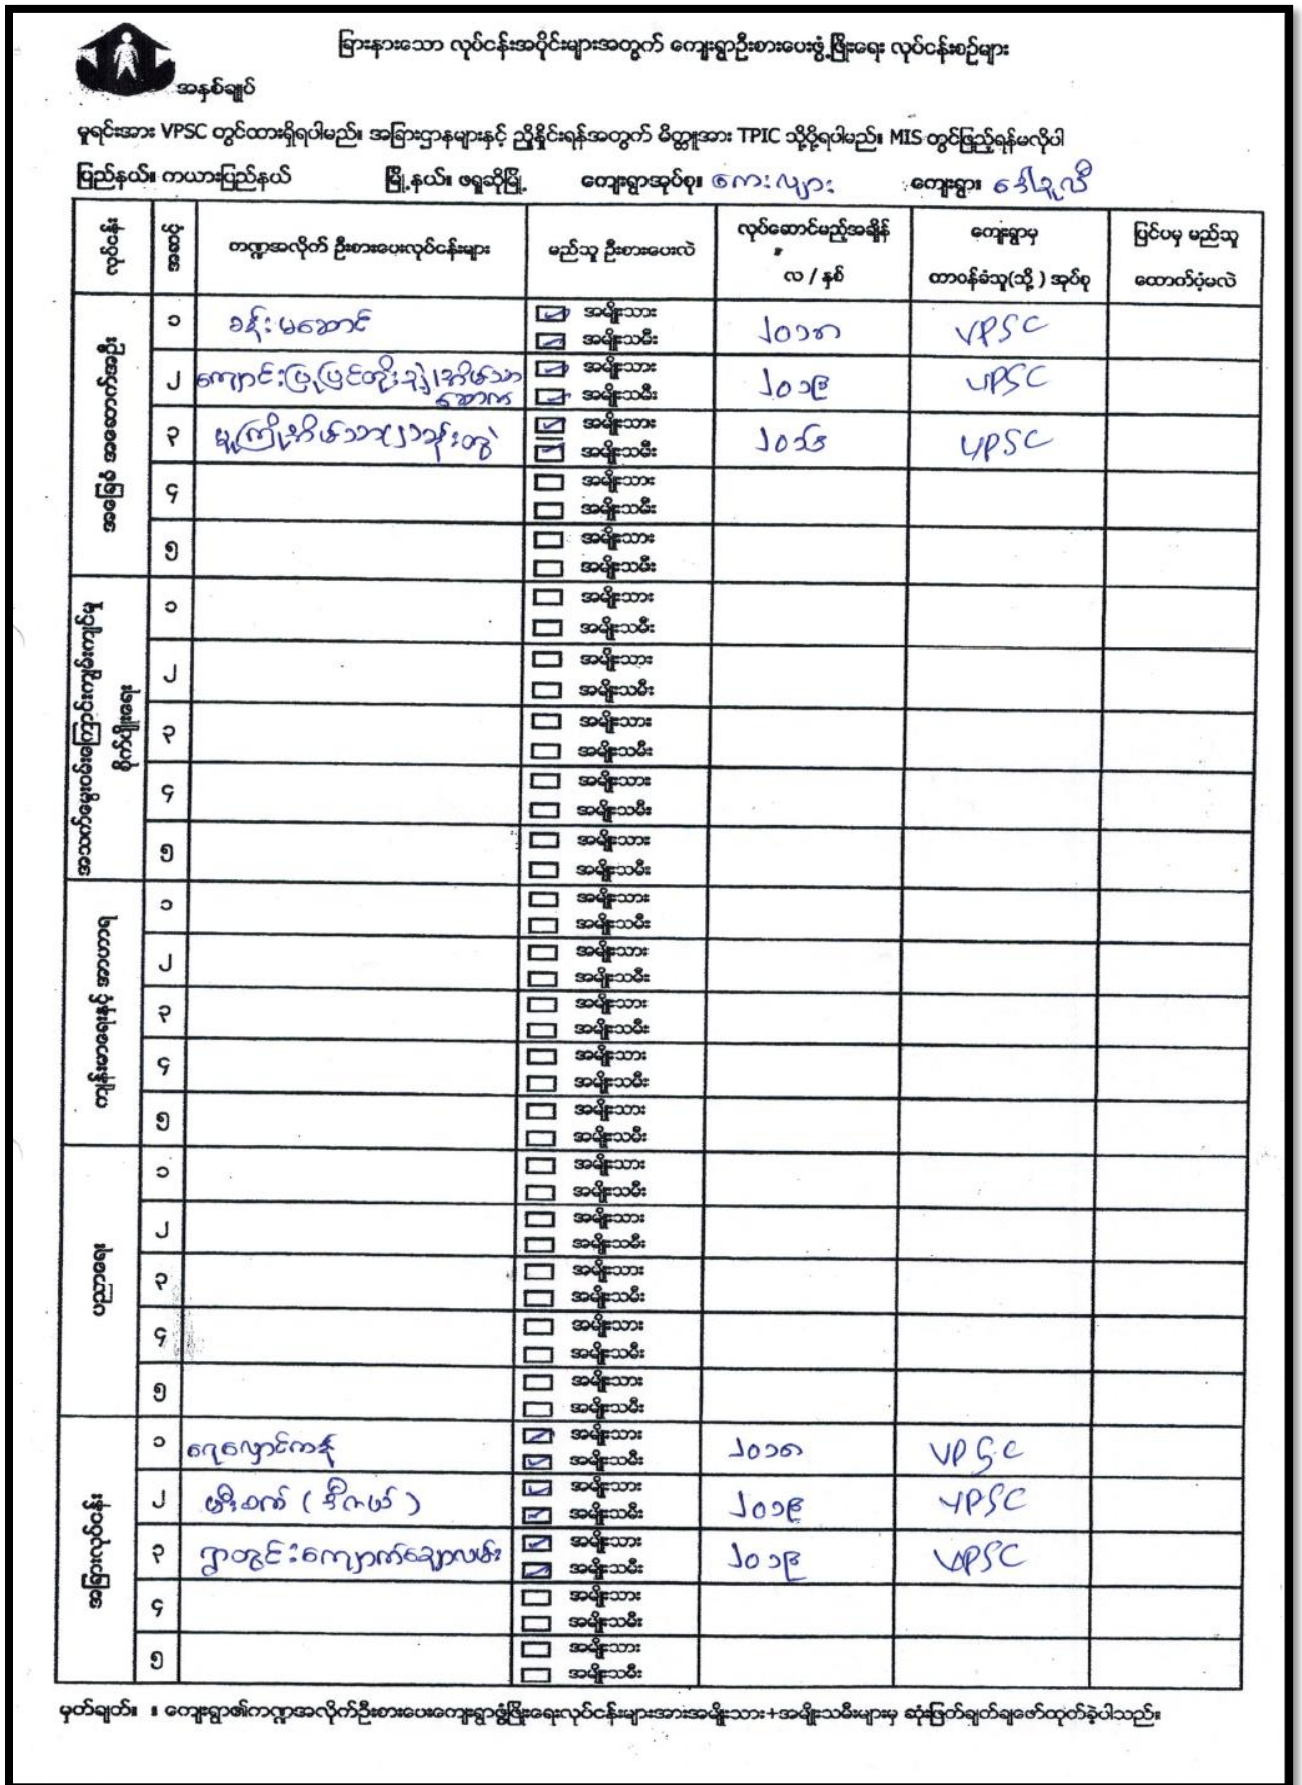 ခြားနားသော လုပ်ငန်းအပိုင်းများအတွက် ကျေးရွာဦးစားပေးဖွံ့ဖြိုးရေး လုပ်ငန်းစဉ်များ
အနှစ်ချုပ်
မူရင်းအား VPSC တွင်ထားရှိရပါမည်။ အခြားဌာနများနှင့် ညှိနှိုင်းရန်အတွက် မိတ္တူအား TPIC သို့ပို့ရပါမည်။ MIS တွင်ဖြည့်ရန်မလိုပါ
ပြည်နယ်။ ကယားပြည်နယ် မြို့နယ်။ ဖရူဆိုမြို့ ကျေးရွာအုပ်စု။ ကေးလျား ကျေးရွာ။
လုပ်ငန်း အဆင့် ကဏ္ဍအလိုက် ဦးစားပေးလုပ်ငန်းများ မည်သူ ဦးစားပေးလဲ လုပ်ဆောင်မည့်အချိန် လ / နှစ် ကျေးရွာမှ တာဝန်ခံသူ(သို့) အုပ်စု ပြင်ပမှ မည်သူ ထောက်ပံ့မလဲ
အခြေခံ အဆောက်အဦ
၁ ခန်းမဆောင် အမျိုးသား အမျိုးသမီး ၂၀၁၈ VPSC
၂ အမျိုးသား အမျိုးသမီး ၂၀၁၉ VPSC
၃ အမျိုးသား အမျိုးသမီး VPSC
၄ အမျိုးသား အမျိုးသမီး
၅ အမျိုးသား အမျိုးသမီး
၁ အမျိုးသား အမျိုးသမီး
၂ အမျိုးသား အမျိုးသမီး
၃ အမျိုးသား အမျိုးသမီး
၄ အမျိုးသား အမျိုးသမီး
၅ အမျိုးသား အမျိုးသမီး
ကျန်းမာရေးနှင့် အာဟာရ
၁ အမျိုးသား အမျိုးသမီး
၂ အမျိုးသား အမျိုးသမီး
၃ အမျိုးသား အမျိုးသမီး
၄ အမျိုးသား အမျိုးသမီး
၅ အမျိုးသား အမျိုးသမီး
ပညာရေး
၁ အမျိုးသား အမျိုးသမီး
၂ အမျိုးသား အမျိုးသမီး
၃ အမျိုးသား အမျိုးသမီး
၄ အမျိုးသား အမျိုးသမီး
၅ အမျိုးသား အမျိုးသမီး
အခြားလုပ်ငန်း
၁ ရေလှောင်ကန် အမျိုးသား အမျိုးသမီး ၂၀၁၈ VPSC
၂ အမျိုးသား အမျိုးသမီး ၂၀၁၉ VPSC
၃ ရွာတွင်းကျောက်ချောလမ်း အမျိုးသား အမျိုးသမီး ၂၀၁၉ VPSC
၄ အမျိုးသား အမျိုးသမီး
၅ အမျိုးသား အမျိုးသမီး
မှတ်ချက်။ ။ ကျေးရွာ၏ကဏ္ဍအလိုက်ဦးစားပေးကျေးရွာဖွံ့ဖြိုးရေးလုပ်ငန်းများအားအမျိုးသား+အမျိုးသမီးများမှ ဆုံးဖြတ်ချက်ချဖော်ထုတ်ခဲ့ပါသည်။